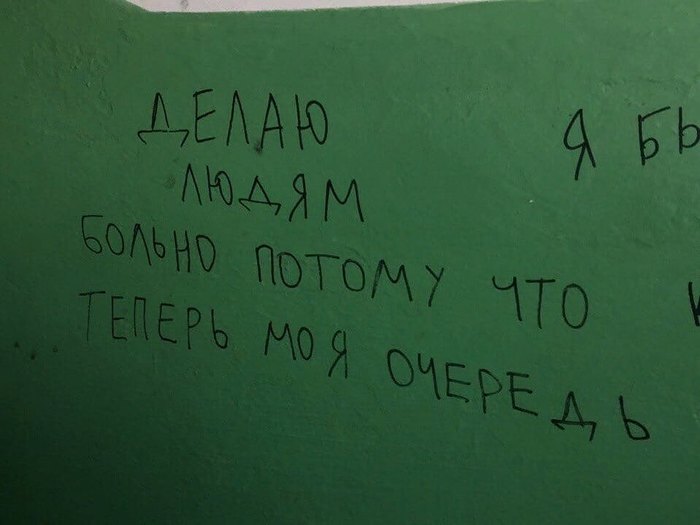 ДЕЛАЮ
ЛЮДЯМ
БОЛЬНО ПОТОМУ ЧТО
ТЕПЕРЬ МОЯ ОЧЕРЕДЬ
Я